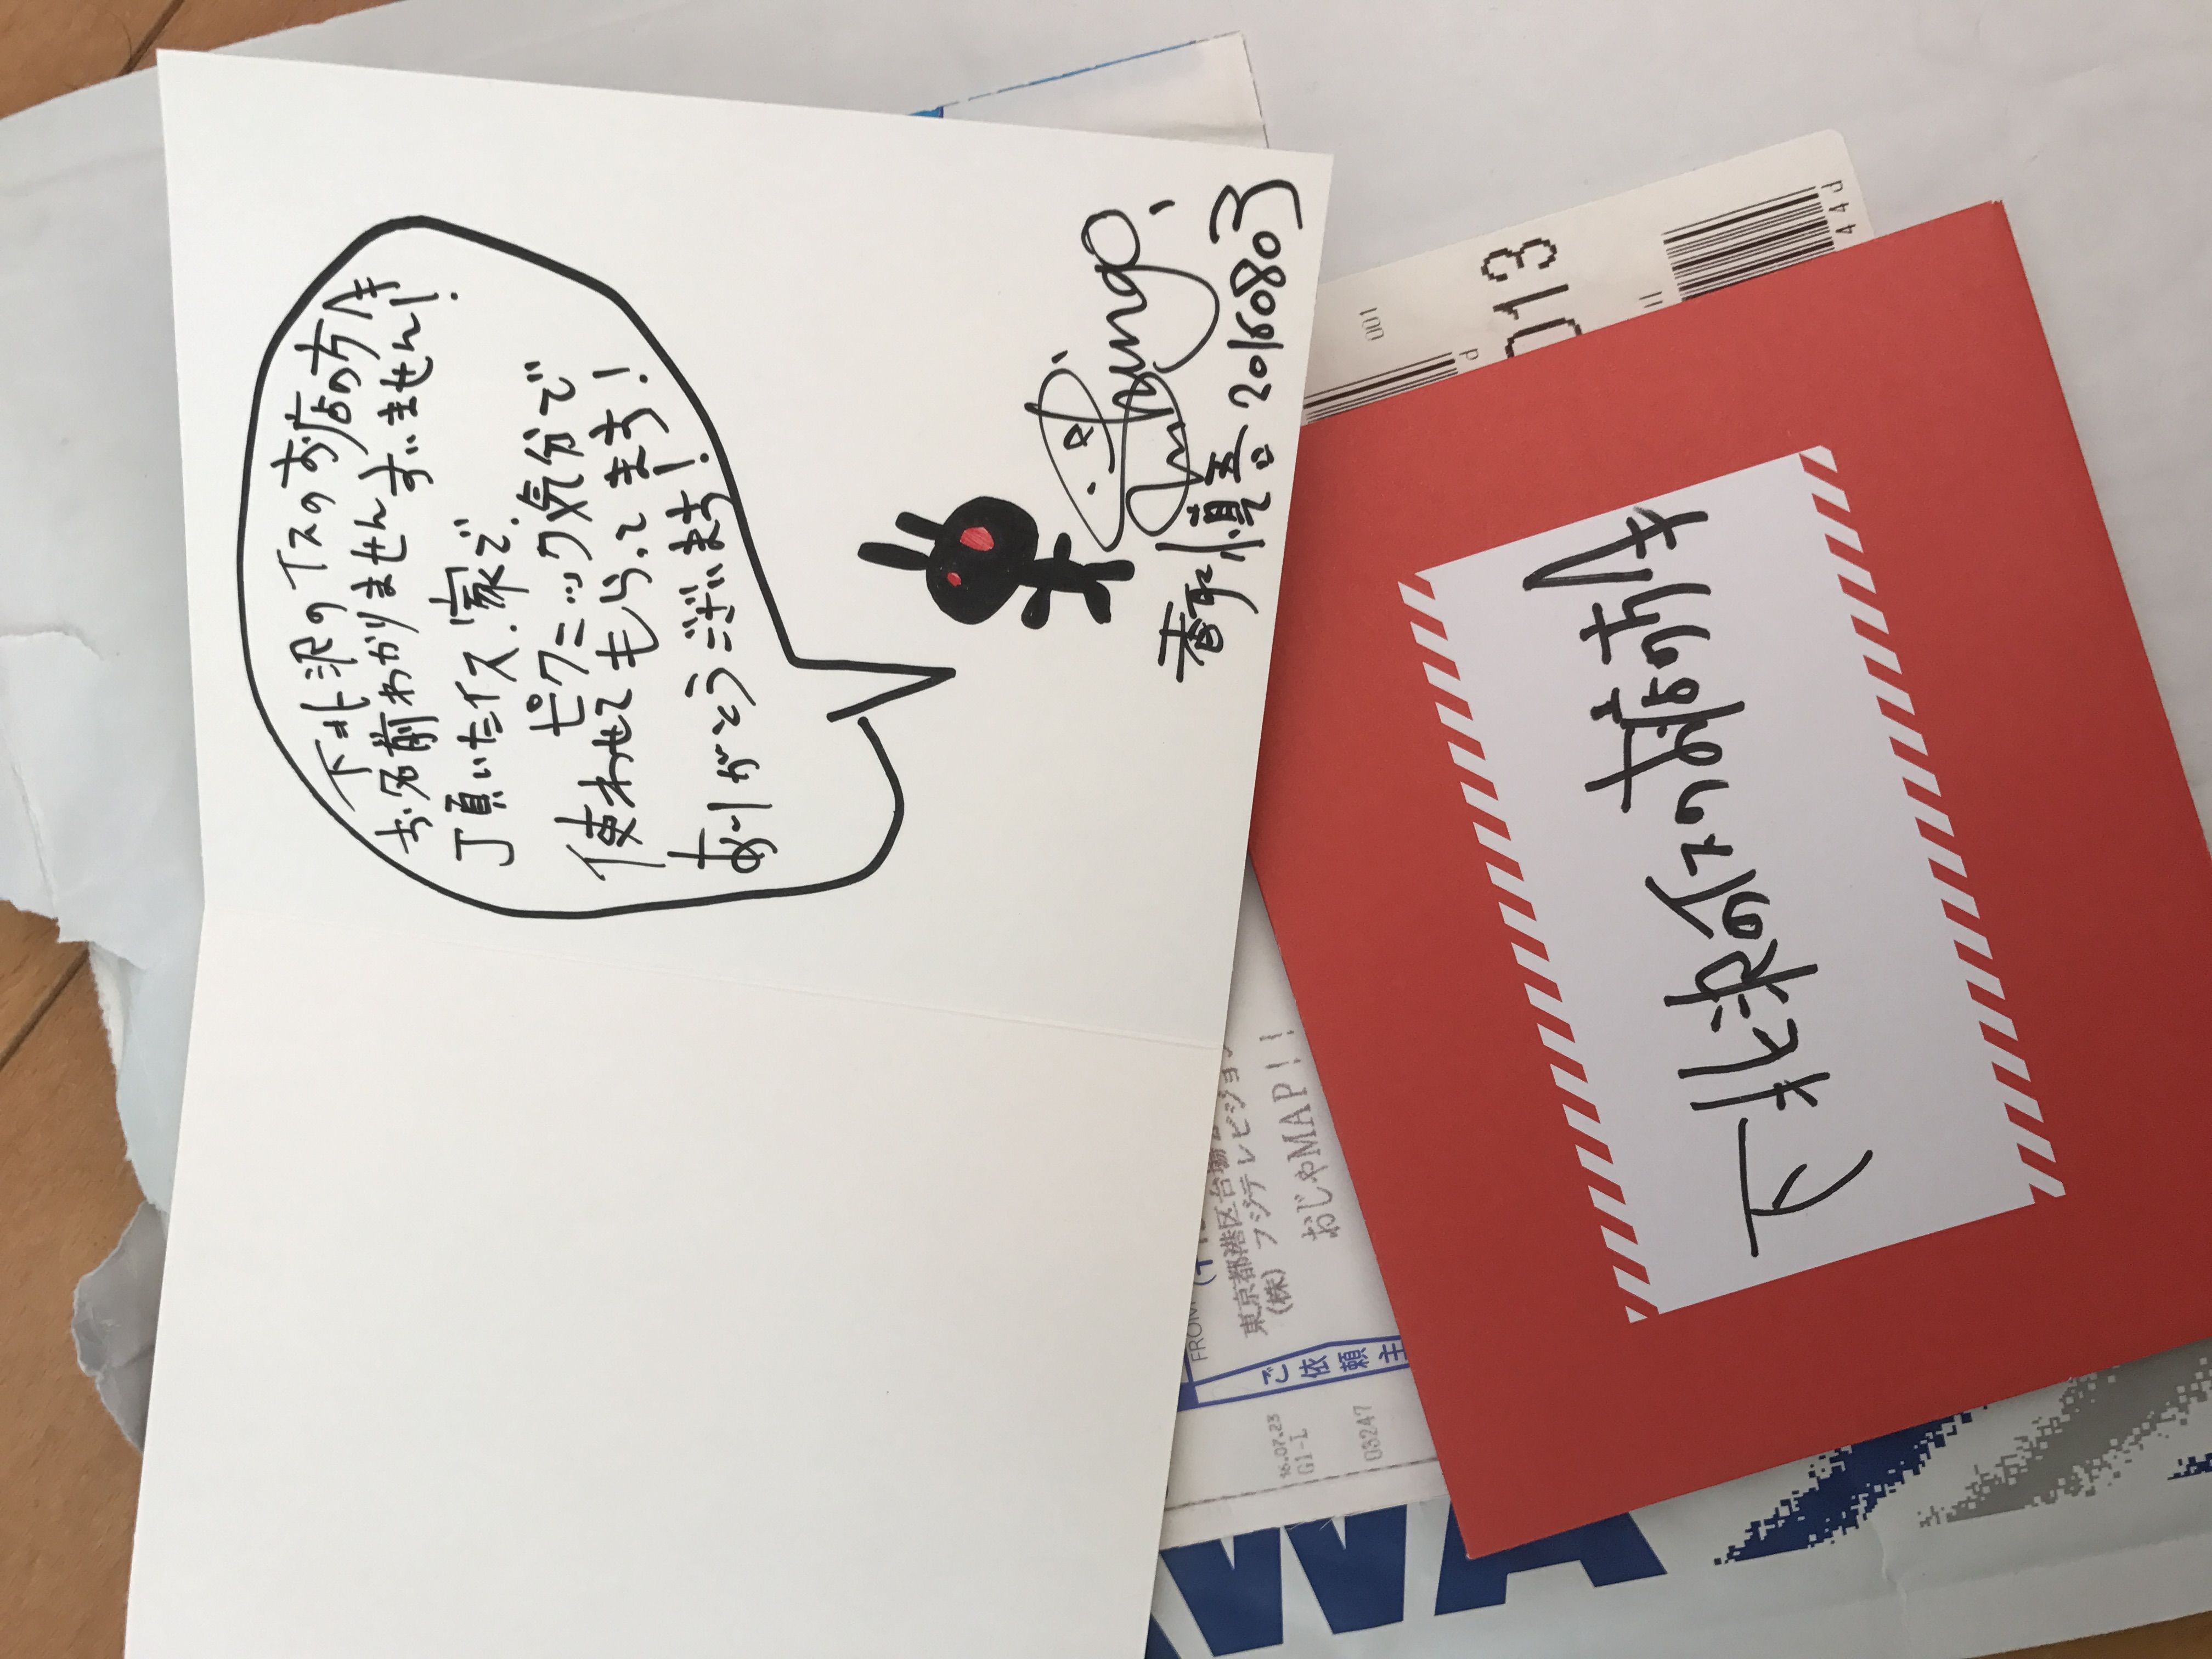 下北沢のイスのお店の方々
お名前わかりませんすいません!
頂いたイス、家で、
ピクニック気分で
使わせてもらってます!
ありがとうございます!
香取慎吾 20160803
下北沢のイスのお店の方々
013
001
FROM
東京都港区台場
(株) フジテレビジョン
おじゃMAP!!
ご依頼主
16.07.23
G1-L
03247
WA